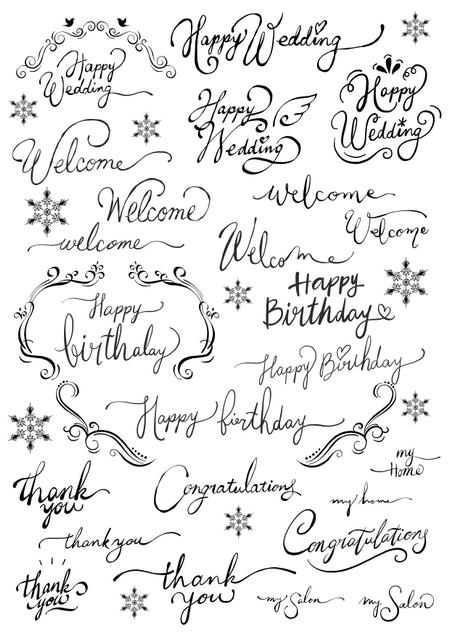 Happy Wedding
Happy
Wedding
Happy
Wedding
Happy
Wedding
Welcome
welcome
Welcome
Welcome
welcome
Welcome
Happy
Birthday
Happy
birthday
Happy Birthday
Happy birthday
my
Home
thank
you
Congratulations
my home
thank you
Congratulations
thank
you
thank
you
my Salon
my Salon